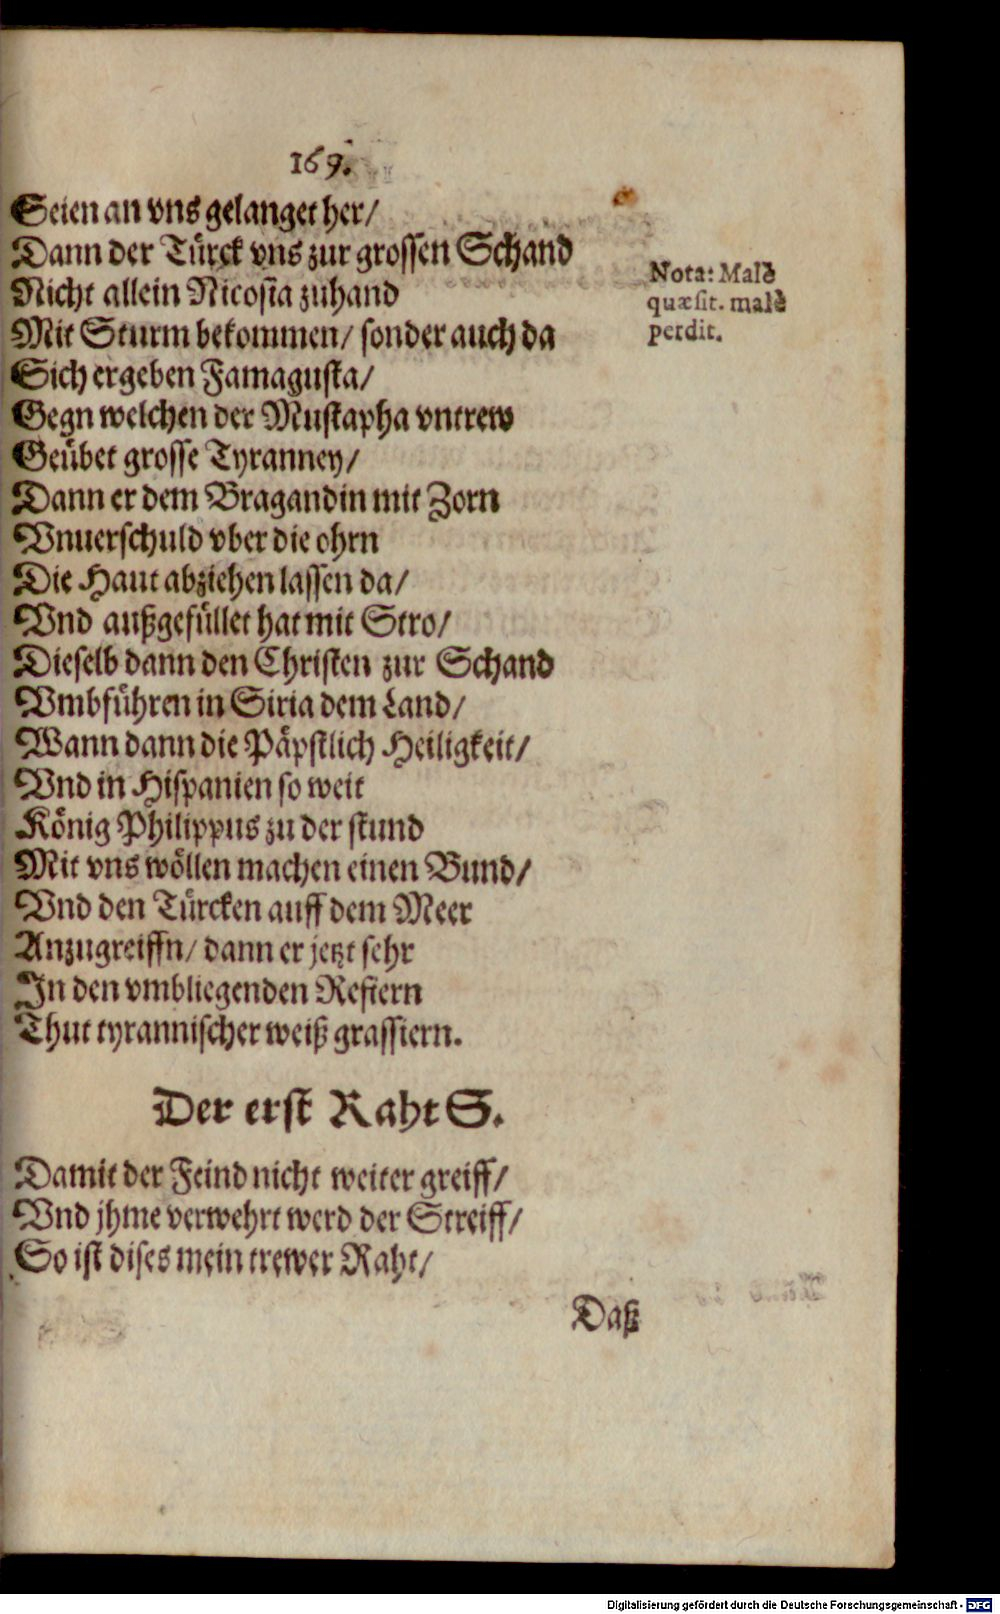 169.
Seien an vns gelanget her/
Dann der Türck vns zur grossen Schand
Nicht allein Nicosia zuhand
Mit Sturm bekommen/ sonder auch da
Sich ergeben Famagusta/
Gegn welchen der Mustapha vntrew
Geübet grosse Tyranney/
Dann er dem Bragandin mit Zorn
Vnuerschuld vber die ohrn
Die Haut abziehen lassen da/
Vnd außgefüllet hat mit Stro/
Dieselb dann den Christen zur Schand
Vmbführen in Siria dem Land/
Wann dann die Päpstlich Heiligkeit/
Vnd in Hispanien so weit
König Philippus zu der stund
Mit vns wöllen machen einen Bund/
Vnd den Türcken auff dem Meer
Anzugreiffn/ dann er jetzt sehr
In den vmbliegenden Refiern
Thut tyrannischer weiß grassiern.
Nota: Malè
quæsit. malè
perdit.
Der erst Raht S.
Damit der Feind nicht weiter greiff/
Vnd jhme verwehrt werd der Streiff/
So ist dises mein trewer Raht/
Daß
Digitalisierung gefördert durch die Deutsche Forschungsgemeinschaft - DFG